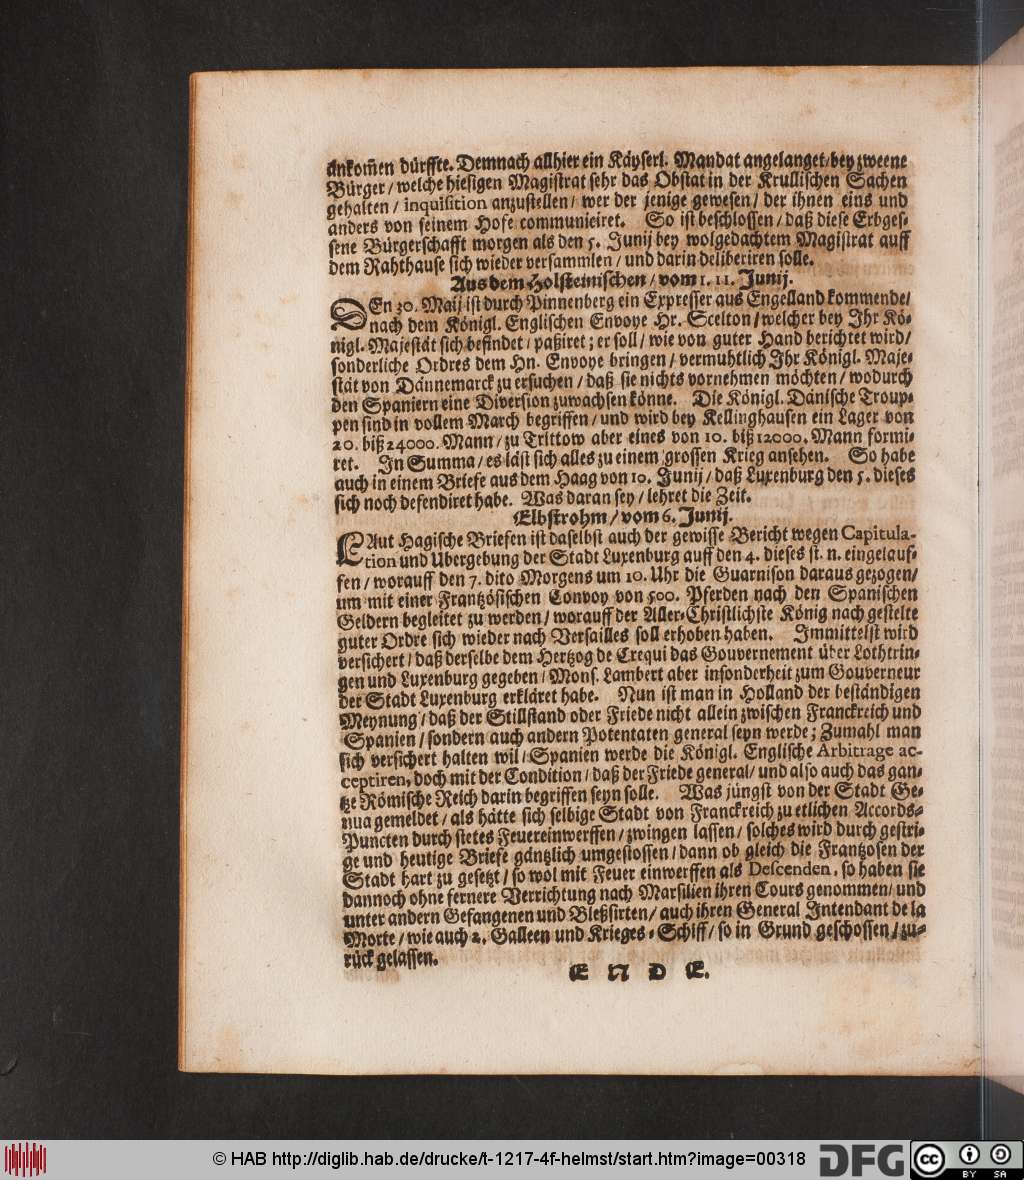 ankom̃en dürffte. Demnach allhier ein Käyserl. Mandat angelanget/ bey zweene
Bürger / welche hiesigen Magistrat sehr das Obstat in der Krullischen Sachen
gehalten / inquisition anzustellen / wer der jenige gewesen / der ihnen eins und
anders von seinem Hofe communieiret. So ist beschlossen / daß diese Erbges-
sene Bürgerschafft morgen als den 5. Junij bey wolgedachtem Magistrat auff
dem Rahthause sich wieder versammlen / und darin deliberiren solle.
Aus dem Holsteinischen / vom 1. 11. Junij.
DEn 30. Maij ist durch Pinnenberg ein Expresser aus Engelland kommende/
nach dem Königl. Englischen Envoye Hr. Scelton / welcher bey Ihr Kö-
nigl. Majestät sich befindet / paßiret ; er soll / wie von guter Hand berichtet wird/
sonderliche Ordres dem Hn. Envoye bringen / vermuhtlich Ihr Königl. Maje-
stät von Dännemarck zu ersuchen / daß sie nichts vornehmen möchten / wodurch
den Spaniern eine Diversion zuwachsen könne. Die Königl. Dänische Troup-
pen sind in vollem March begriffen / und wird bey Kellinghausen ein Lager von
20. biß 24000. Mann / zu Trittow aber eines von 10. biß 12000. Mann formi-
ret. In Summa / es läst sich alles zu einem grossen Krieg ansehen. So habe
auch in einem Briefe aus dem Haag von 10. Junij / daß Luxenburg den 5. dieses
sich noch defendiret habe. Was daran sey / lehret die Zeit.
Elbstrohm / vom 6. Junij.
LAut Hagische Briefen ist daselbst auch der gewisse Bericht wegen Capitula-
tion und Ubergebung der Stadt Luxenburg auff den 4. dieses st. n. eingelauf-
fen / worauff den 7. dito Morgens um 10. Uhr die Guarnison daraus gezogen/
um mit einer Frantzösischen Convoy von 500. Pferden nach den Spanischen
Geldern begleitet zu werden / worauff der Aller-Christlichste König nach gestelte
guter Ordre sich wieder nach Versailles soll erhoben haben. Immittelst wird
versichert / daß derselbe dem Hertzog de Crequi das Gouvernement über Lothrin-
gen und Luxenburg gegeben / Mons. Lambert aber insonderheit zum Gouverneur
der Stadt Luxenburg erkläret habe. Nun ist man in Holland der beständigen
Meynung / daß der Stillstand oder Friede nicht allein zwischen Franckreich und
Spanien / sondern auch andern Potentaten general seyn werde ; Zumahl man
sich versichert halten wil / Spanien werde die Königl. Englische Arbitrage ac-
ceptiren, doch mit der Condition / daß der Friede general/ und also auch das gan-
tze Römische Reich darin begriffen seyn solle. Was jüngst von der Stadt Ge-
nua gemeldet / als hätte sich selbige Stadt von Franckreich zu etlichen Accords-
Puncten durch stetes Feuereinwerffen / zwingen lassen / solches wird durch gestri-
ge und heutige Briefe gäntzlich umgestossen / dann ob gleich die Frantzosen der
Stadt hart zu gesetzt / so wol mit Feuer einwerffen als Descenden, so haben sie
dannoch ohne fernere Verrichtung nach Marsilien ihren Cours genommen / und
unter andern Gefangenen und Bleßirten / auch ihren General Intendant de la
Morte / wie auch 2. Galleen und Krieges-Schiff / so in Grund geschossen / zu-
rück gelassen.
ENDE.
© HAB http://diglib.hab.de/drucke/t-1217-4f-helmst/start.htm?image=00318
DFG
cc BY SA